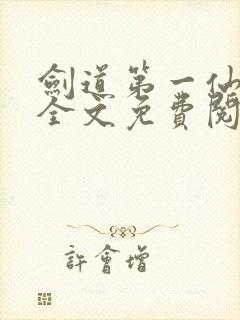 劍道第一仙
全文免費閱
許會增